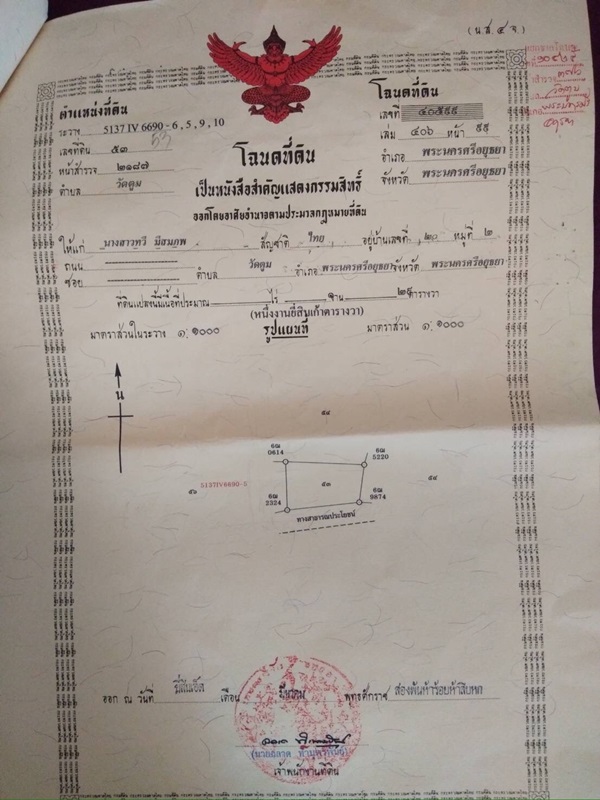 (น.ส. ๔ จ.)
ตำแหน่งที่ดิน
ระวาง 5137 IV 6690 - 6 , 5 , 9 , 10
เลขที่ดิน ๕๓
หน้าสำรวจ ๒๑๘๗
ตำบล วัดตูม
โฉนดที่ดิน
เลขที่ ๔๐๕๙๙
เล่ม ๔๐๖ หน้า ๙๙
อำเภอ พระนครศรีอยุธยา
จังหวัด พระนครศรีอยุธยา
โฉนดที่ดิน
เป็นหนังสือสำคัญแสดงกรรมสิทธิ์
ออกโดยอาศัยอำนาจตามประมวลกฎหมายที่ดิน
ให้แก่ นางสาวทวี มีสมภพ สัญชาติ ไทย อยู่บ้านเลขที่ ๒๐ หมู่ที่ ๒
ถนน
ซอย ตำบล วัดตูม อำเภอ พระนครศรีอยุธยา จังหวัด พระนครศรีอยุธยา
ที่ดินแปลงนี้มีเนื้อที่ประมาณ ไร่ ๑ งาน ๒๙ ตารางวา
(หนึ่งงานยี่สิบเก้าตารางวา)
มาตราส่วนในระวาง ๑:๑๐๐๐ รูปแผนที่ มาตราส่วน ๑:๑๐๐๐
น
๕๔
6ฒ 0614
6ฒ 5220
๕๖
5137IV6690-5
๕๓
๕๔
6ฒ 2324
6ฒ 9874
ทางสาธารณประโยชน์
ออก ณ วันที่ ยี่สิบเอ็ด เดือน มีนาคม พุทธศักราช สองพันห้าร้อยห้าสิบหก
เจ้าพนักงานที่ดิน